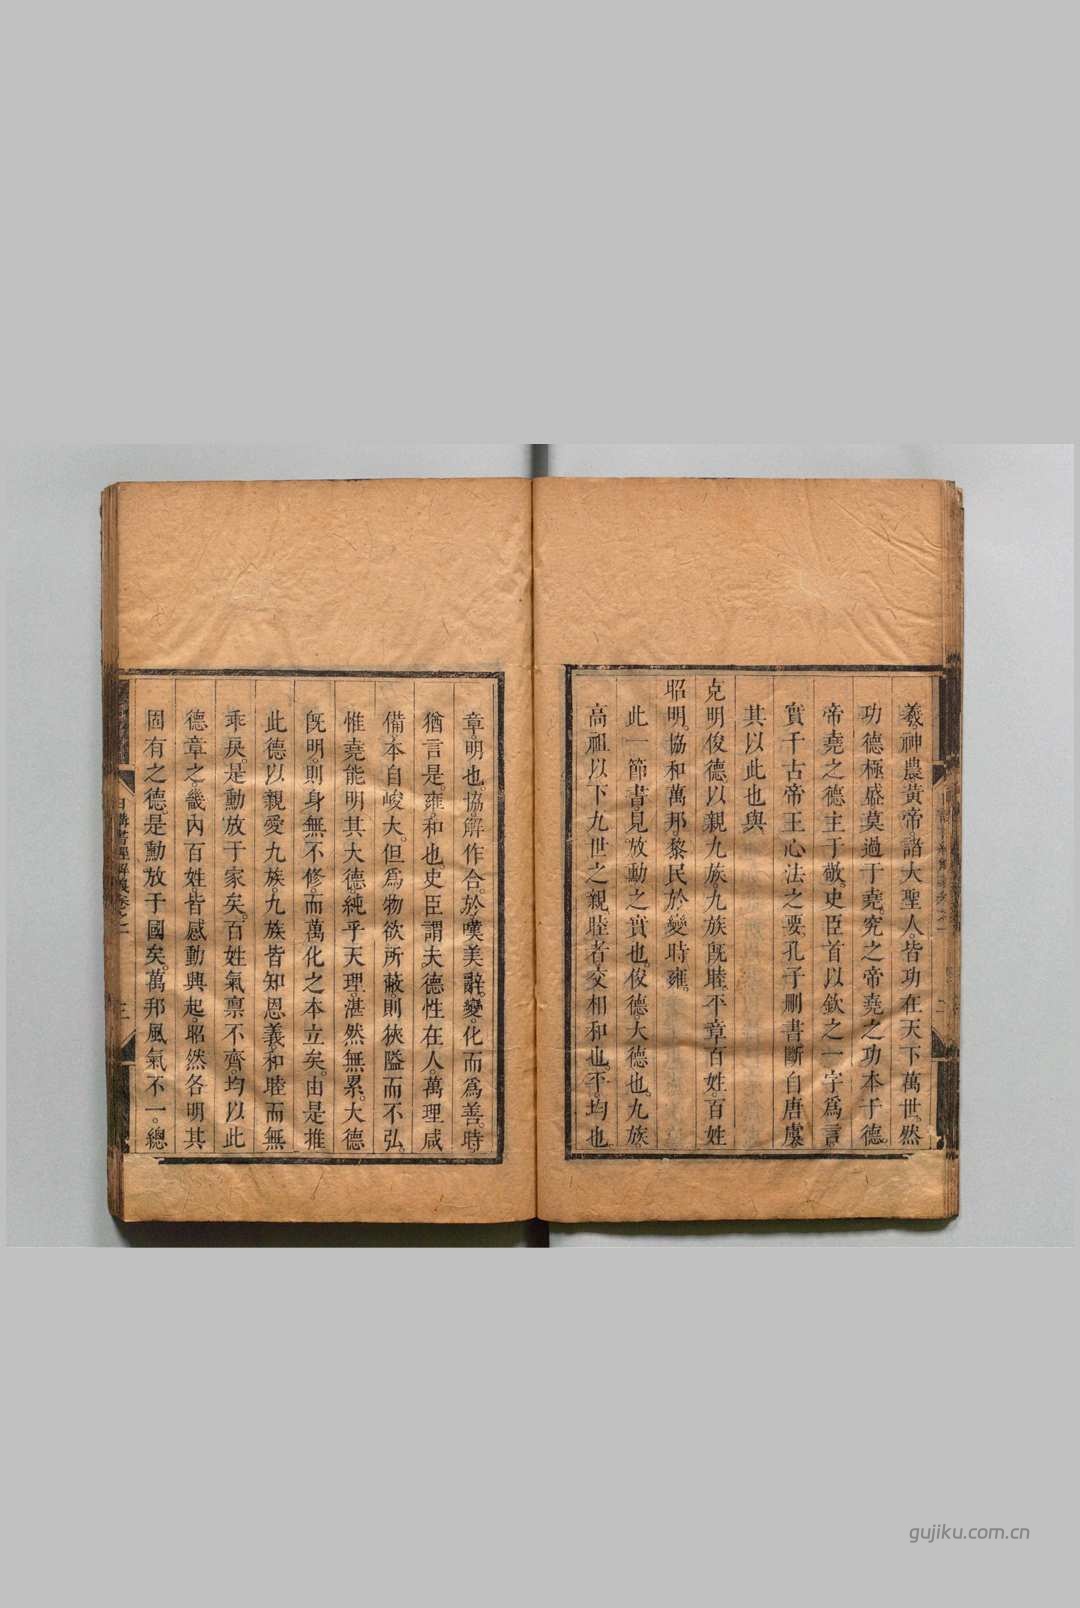 羲神農黃帝。諸大聖人。皆功在天下萬世。然
功德極盛莫過于堯。究之帝堯之功本于德。
帝堯之德主于敬。史臣首以欽之一字爲言。
實千古帝王心法之要。孔子刪書斷自唐虞。
其以此也與
克明俊德。以親九族。九族旣睦。平章百姓。百姓
昭明。協和萬邦。黎民於變時雍。
此一節書。見放勳之實也。俊德。大德也。九族。
高祖以下九世之親。睦者。交相和也。平。均也。
章。明也。協。解作合。於。嘆美辭。變。化而爲善。時。
猶言是。雍。和也。史臣謂夫德性在人。萬理咸
備。本自峻大。但爲物欲所蔽。則狹隘而不弘。
惟堯能明其大德。純乎天理。湛然無累。大德
旣明。則身無不修。而萬化之本立矣。由是推
此德以親愛九族。九族皆知恩義。和睦而無
乖戾。是勳放于家矣。百姓氣稟不齊。均以此
德章之。畿內百姓。皆感動興起。昭然各明其
固有之德。是勳放于國矣。萬邦風氣不一。總
日講書經解義卷之一
三
gujiku.com.cn